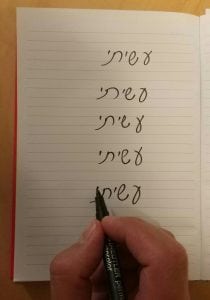 עשיתי
עשיתי
עשיתי
עשיתי
עשיתי